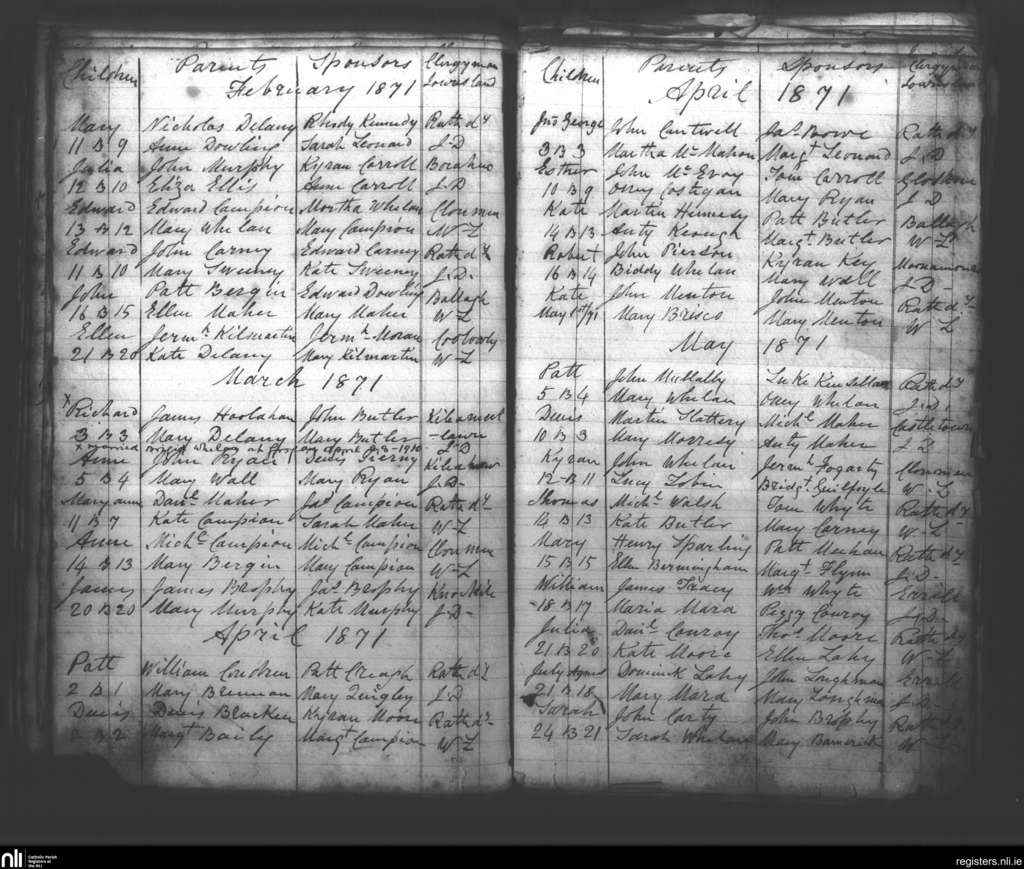 Children Parents Sponsors Clergyman
Townsland
February 1871
Mary Nicholas Delany Rhody Kennedy Rathdy
11 B 9 Anne Dowling Sarah Leonard J-D
Julia John Murphy Kyran Carroll
12 B 10 Eliza Ellis Anne Carroll J-D
Edward Edward Campion Martha Whelan Clonmeen
13 B 12 Mary Whelan Mary Campion W-L
Edward John Carney Edward Carney Rathdy
11 B 10 Mary Sweeney Kate Sweeney J.D.
John Patt Bergin Edward Dowling Ballagh
16 B 15 Ellen Maher Mary Maher W-L
Ellen Jermh Kilmartin Jermh Moran
21 B 20 Kate Delany Mary Kilmartin W-L
March 1871
x Richard James Hoolahan John Butler
3 B 3 Mary Delany Mary Butler -lawn
x married J-D
Anne John Ryan Denis Tierny
5 B 4 Mary Wall Mary Ryan J.D-
Maryann Danl Maher Jas Campion Rathdy
11 B 7 Kate Campion Sarah Maher W-L
Anne Michl Campion Michl Campion Clonmeen
14 B 13 Mary Bergin Mary Campion W-L
James James Brophy Jas Brophy
20 B 20 Mary Murphy Kate Murphy J-D-
April 1871
Patt William Condren Patt Creagh Rathdy
2 B 1 Mary Brennan Mary Quigley J-D
Denis Denis Bracken Kyran Moore Rathdy
B 2 Margt Baily Margt Campion W-L
Children Parents Sponsors Clergyman
April 1871
Jno George John Cantwell Jas Bowe Rathdy
3 B 3 Martha McMahon Margt Leonard J.D
Esther John McEvoy Tom Carroll
10 B 9 Costigan Mary Ryan J D
Kate Martin Hennesy Patt Butler Ballagh
14 B 13 Anty Keough Margt Butler W-L
Robert John Pierson Kyran Key
16 B 14 Biddy Whelan Mary Wall J.D-
Kate John Menton John Menton Rathdy
May 1st/71 Mary Brisco Mary Menton W-L
May 1871
Patt John Luke Kinsellan Rathdy
5 B 4 Mary Whelan Whelan J.D.
Denis Martin Slattery Michl Maher Castletown
10 B 3 Mary Morresy Anty Maher J D
Kyran John Whelan Jermh Fogarty Clonmeen
12-B 11 Lucy Tobin Bridgt Guilfoyle W-L
Thomas Michl Walsh Tom Whyte Rathdy
14 B 13 Kate Butler Mary Carney W-L
Mary Henry Sparling Patt Meehan Rathdy
15 B 15 Ellen Bermingham Margt Flynn J.D-
William James Tracy Wm Whyte Errill
-18 B 17 Maria Mara Peggy Conroy J.D-
Julia Danl Conroy Thos Moore Rathdy
21 B 20 Kate Moore Ellen Lahy W-L
July Agnes Dominick Lahy John Loughman Errill
21 B 18 Mary Mara Mary Loughman J.D-
Sarah John Carty John Brophy Rathdy
24 B 21 Sarah Mary W-L
nli Catholic Parish
Registers at
the NLI
registers.nli.ie